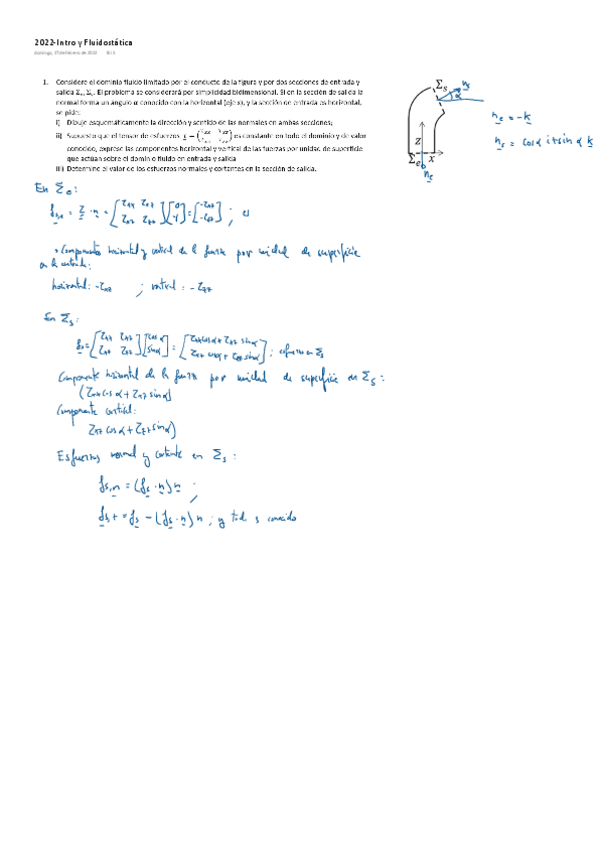 2022-Intro y Fluidostática
1. Considere el dominio fluido limitado por el conducto de la figura y por dos secciones de entrada y
salida Σₑ, Σₛ. El problema se considerará por simplicidad bidimensional. Si en la sección de salida la
normal forma un ángulo α conocido con la horizontal (eje x), y la sección de entrada es horizontal,
se pide:
i) Dibuje esquemáticamente la dirección y sentido de las normales en ambas secciones;
ii) Supuesto que el tensor de esfuerzos es constante en todo el dominio y de valor
conocido, exprese las componentes horizontal y vertical de las fuerzas por unidad de superficie
que actúan sobre el dominio fluido en entrada y salida
iii) Determine el valor de los esfuerzos normales y cortantes en la sección de salida.
Σₛ nₛ
α
z
Σₑ x
nₑ
nₑ = -k
nₛ = cosα i + sin α k
En Σₑ:
= τ · n = [τxx τxz τxz τzz] [0 -1] = [-τxz -τzz] ;
• Componente horizontal y vertical de la fuerza por unidad de superficie
en la entrada:
horizontal: -τxz ; vertical = -τzz
En Σₛ:
fₛ = [τxx τxz τxz τzz] [cos α sin α] = [τxx cos α + τxz sin α τxz cos α + τzz sin α] ; esfuerzo en Σₛ
Componente horizontal de la fuerza por unidad de superficie en Σₛ:
(τxx cos α + τxz sin α)
Componente vertical:
τxz cos α + τzz sin α)
Esfuerzos normal y cortante en Σₛ:
fₛ,n = (fₛ · n) n ;
fₛ,t = fₛ - (fₛ · n) n ; y todo es conocido